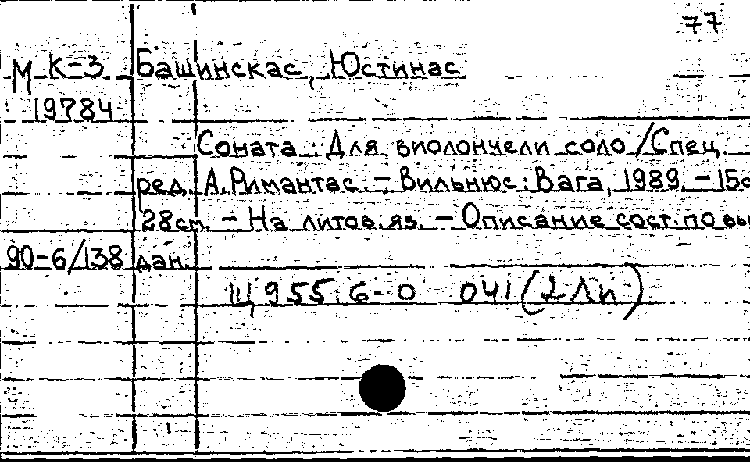 77
М К-3 Башинскас, Юстинас
19784
Соната : Для виолончели соло / Спец.
ред. А. Римантас. – Вильнюс : Вага, 1989. – 15с
28см. – На литов. яз. – Описание сост. по вы
90-6/138 дан.
Щ955.6-0 041(2Ли)